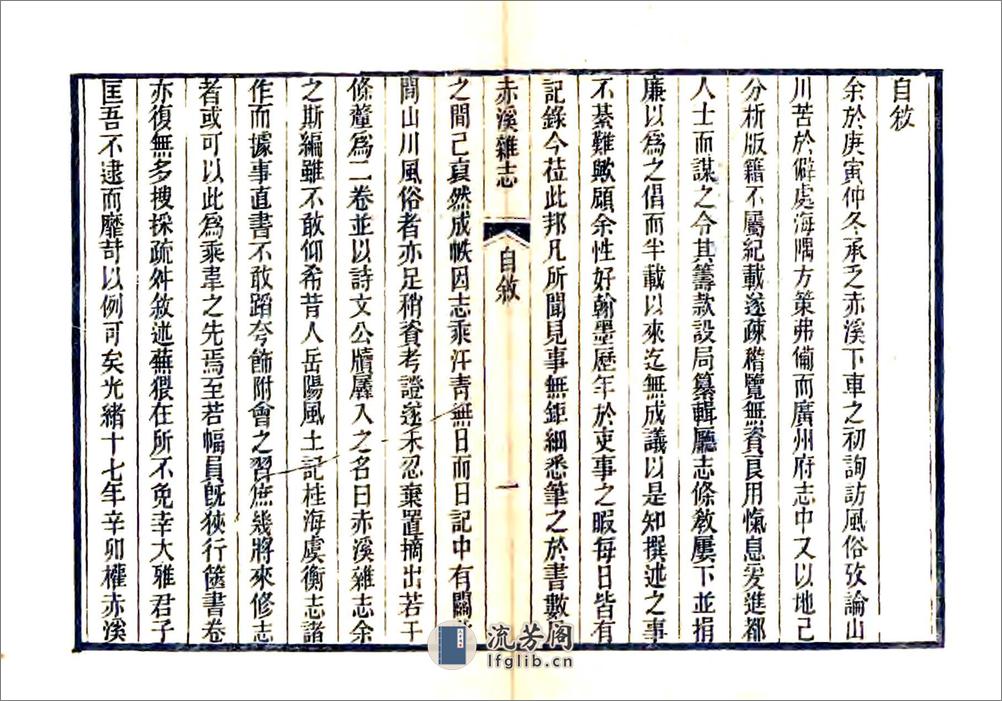 自敘
余於庚寅仲冬承乏赤溪下車之初詢訪風俗攷論山
川苦於僻處海隅方策弗備而廣州府志中又以地已
分析版籍不屬紀載遂疎稽覽無資良用愾息爰進都
人士而謀之令其籌款設局纂輯廳志條敎屢下並捐
廉以爲之倡而半載以來迄無成議以是知撰述之事
不綦難歟顧余性好翰墨歷年於吏事之暇每日皆有
記錄今莅此邦凡所聞見事無鉅細悉筆之於書數
赤溪雜志 自敘 一
之間已裒然成帙因志乘汗青無日而日記中有關
間山川風俗者亦足稍資考證遂未忍棄置摘出若干
條釐爲二卷並以詩文公牘羼入之名曰赤溪雜志余
之斯編雖不敢仰希昔人岳陽風土記桂海虞衡志諸
作而據事直書不敢蹈夸飾附會之習庶幾將來修志
者或可以此爲乘韋之先焉至若幅員旣狹行篋書卷
亦復無多搜採疏舛敘述蕪猥在所不免幸大雅君子
匡吾不逮而靡苛以例可矣光緒十七年辛卯權赤溪
流芳阁
lfglib.cn